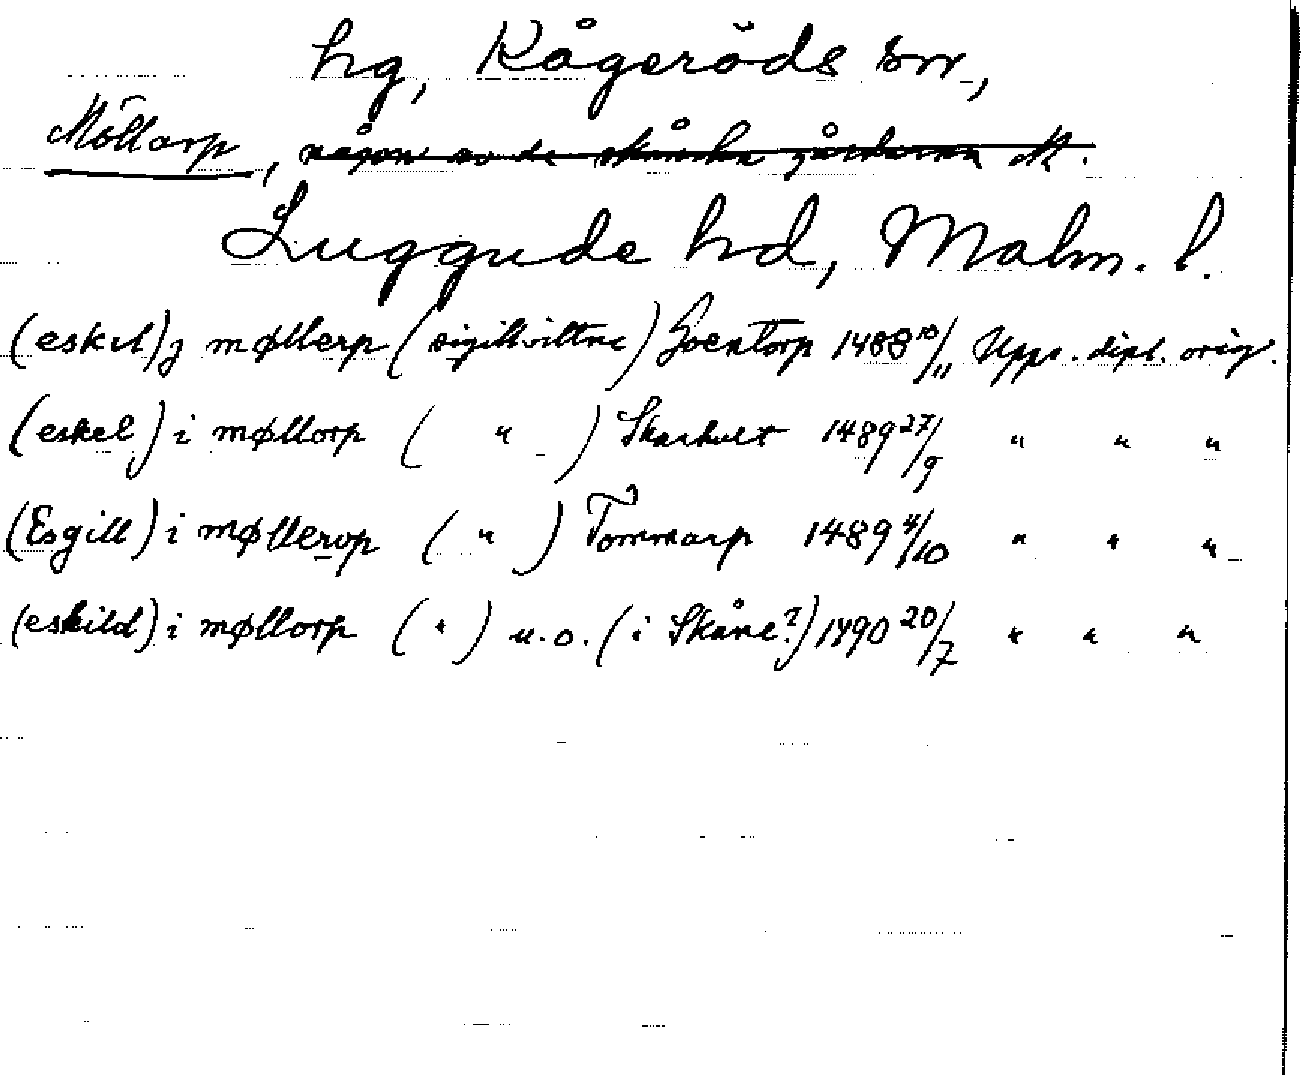 hg, Kågeröds sn,
Möllarp, någon av de skånska gårdarna M.
Luggude hd, Malm. l.
(eskil) j møllerp (sigillvittne) Joentorp 1488 10/11 Upps. dipl. orig.
(eskel) i møllorp ( " ) Skarhult 1489 27/9 " " "
(Esgill) i møllerop ( " ) Tommarp 1489 4/10 " " "
(eskild) i møllorp ( " ) u.o. (i Skåne?) 1490 20/7 " " "